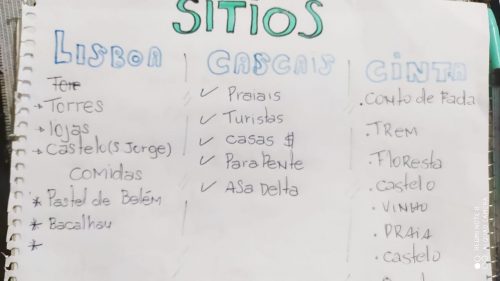 SITIOS
LISBOA
Torres
lojas
Castelo (S Jorge)
COMIDAS
* Pastel de Belém
* Bacalhau
*
CASCAIS
✓ Praiais
✓ Turistas
✓ casas $
✓ Para Pente
✓ Asa Delta
CINTA
.CONTO de Fada
.TREM
.FLORESTA
.castelo
.VINHO
.PRAIA
.castelo